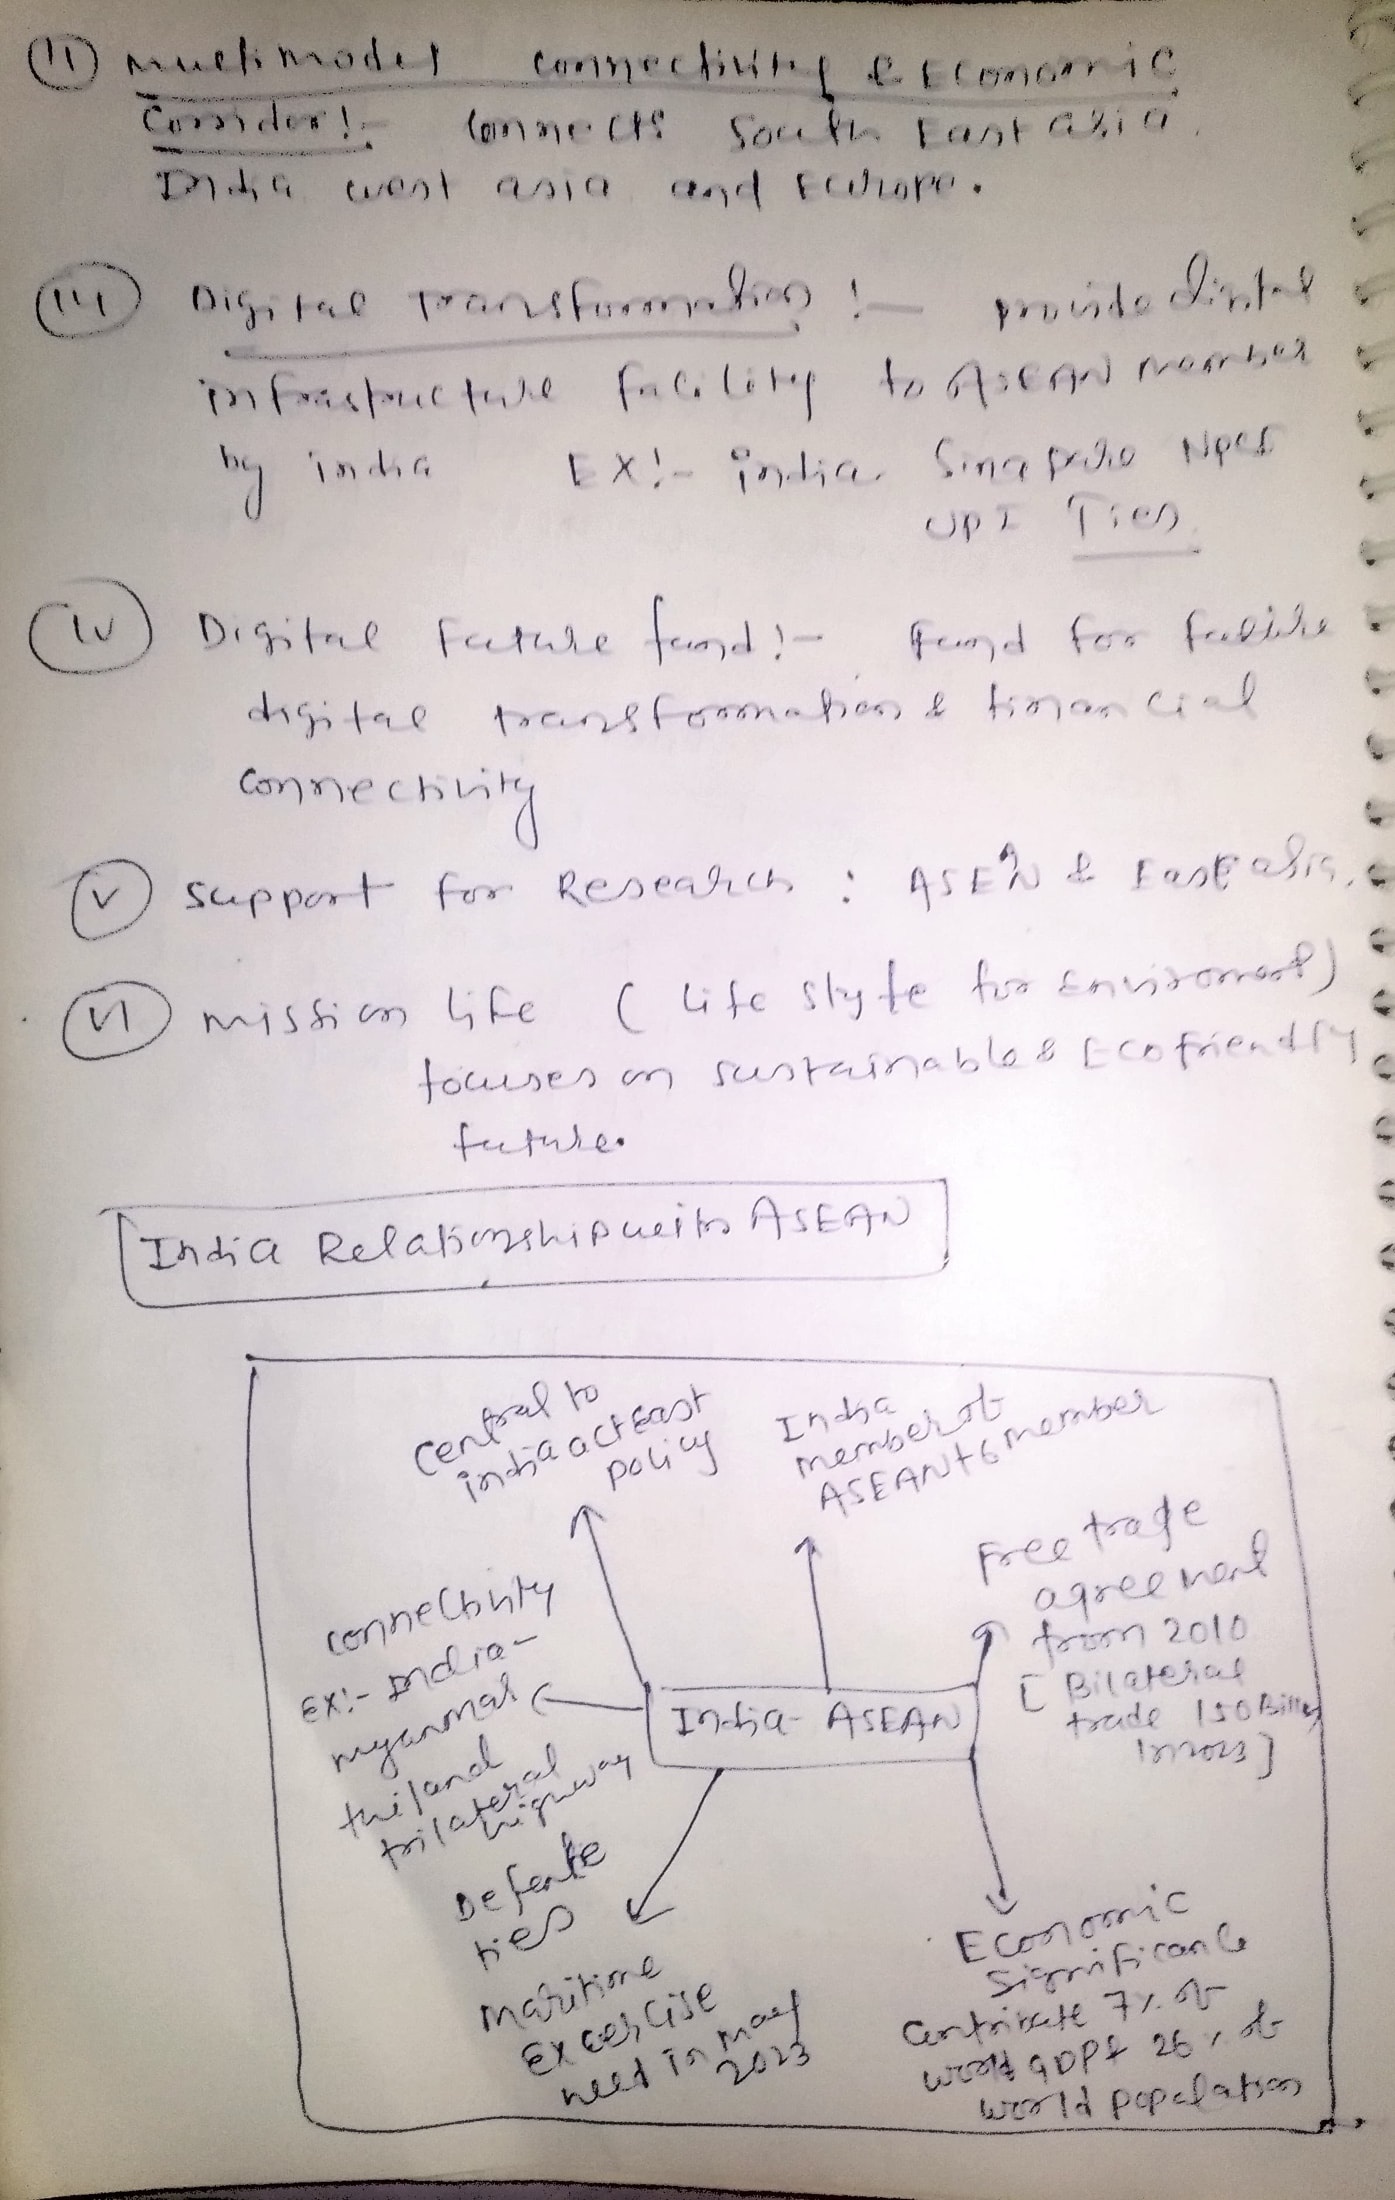 (ii) multimodel connectivity & Economic
Corridor:- Connects South East asia
India west asia and Europe.
(iii) Digital Transformation :- provide digital
infrastructure facility to ASEAN member
by india EX:- india Singapore NPCI
UPI Ties
(iv) Digital future fund :- Fund for future
digital transformation & financial
connectivity
(v) support for Research : ASEAN & East asia.
(vi) mission life ( life style for Enviroment)
focuses on sustainable & Ecofriendly
future.
India Relationship with ASEAN
central to
india act East
policy
India
member of
ASEAN+6 member
Free trade
agreement
from 2010
[ Bilateral
trade 150 Billion
in 2023 ]
connectivity
EX:- India-
myanmar
thiland
trilateral
highway
India- ASEAN
Defence
ties
maritime
Excercise
held in may
2023
Economic
significance
contribute 7% of
world GDP & 26% of
world population